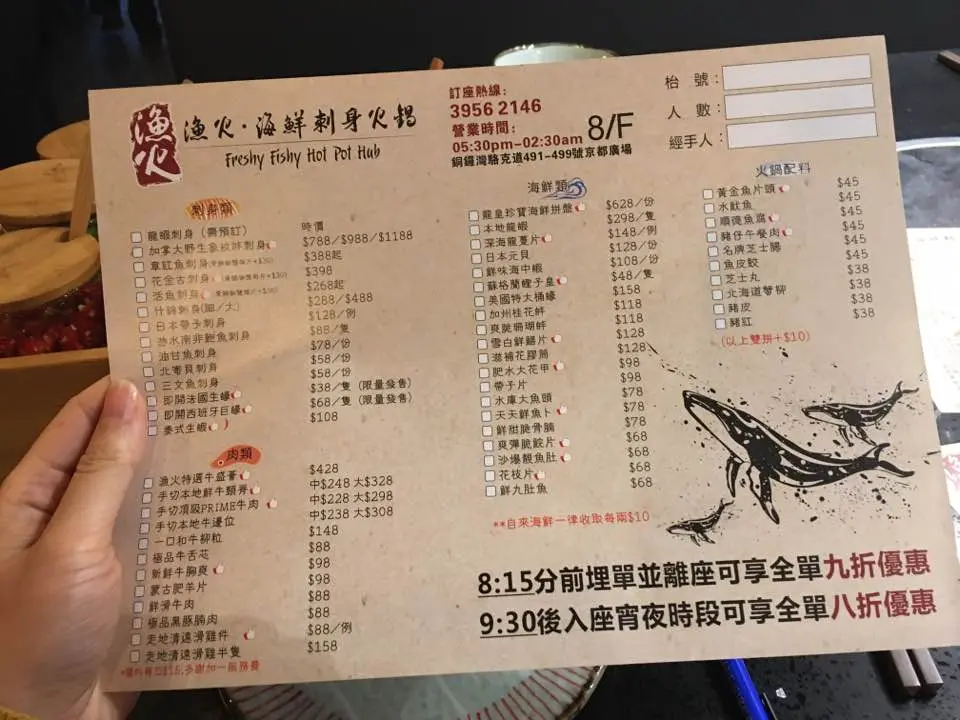 漁火
漁火·海鮮刺身火鍋
Freshy Fishy Hot Pot Hub
訂座熱線:
3956 2146
營業時間:
05:30pm-02:30am
8/F
銅鑼灣駱克道491-499號京都廣場
枱 號:
人 數:
經手人:
刺身類
龍蝦刺身(需預訂) 時價
加拿大野生象拔蚌刺身 $788/$988/$1188
章紅魚刺身 $388起
花金古刺身 $398
活魚刺身 $268起
什錦刺身(細/大) $288/$488
日本帶子刺身 $128/例
游水南非鮑魚刺身 $88/隻
油甘魚刺身 $78/份
北寄貝刺身 $58/份
三文魚刺身 $58/份
即開法國生蠔 $38/隻(限量發售)
即開西班牙巨蠔 $68/隻(限量發售)
泰式生蝦 $108
肉類
漁火特選牛盛薈 $428
手切本地鮮牛頸脊 中$248 大$328
手切頂級PRIME牛肉 中$228 大$298
手切本地牛邊位 中$238 大$308
一口和牛柳粒 $148
極品牛舌芯 $88
新鮮牛胸爽 $98
蒙古肥羊片 $98
鮮滑牛肉 $88
極品黑豚腩肉 $88
走地清遠滑雞件 $88/例
走地清遠滑雞半隻 $158
海鮮類
龍皇珍寶海鮮拼盤 $628/份
本地龍蝦 $298/隻
深海龍躉片 $148/例
日本元貝 $128/份
鮮味海中蝦 $108/份
蘇格蘭蟶子皇 $48/隻
美國特大桶蠔 $158
加州桂花蚌 $118
爽脆珊瑚蚌 $118
雪白鮮鱔片 $128
滋補花膠筒 $128
肥水大花甲 $98
帶子片 $98
水庫大魚頭 $78
天天鮮魚卜 $78
鮮甜脆骨腩 $78
爽彈脆鯇片 $68
沙爆靚魚肚 $68
花枝片 $68
鮮九肚魚 $68
**自來海鮮一律收取每兩$10
火鍋配料
黃金魚片頭 $45
水魷魚 $45
順德魚腐 $45
豬仔午餐肉 $45
名牌芝士腸 $45
魚皮餃 $45
芝士丸 $38
北海道蟹柳 $38
豬皮 $38
豬紅 $38
(以上雙拼+$10)
8:15分前埋單並離座可享全單九折優惠
9:30後入座宵夜時段可享全單八折優惠